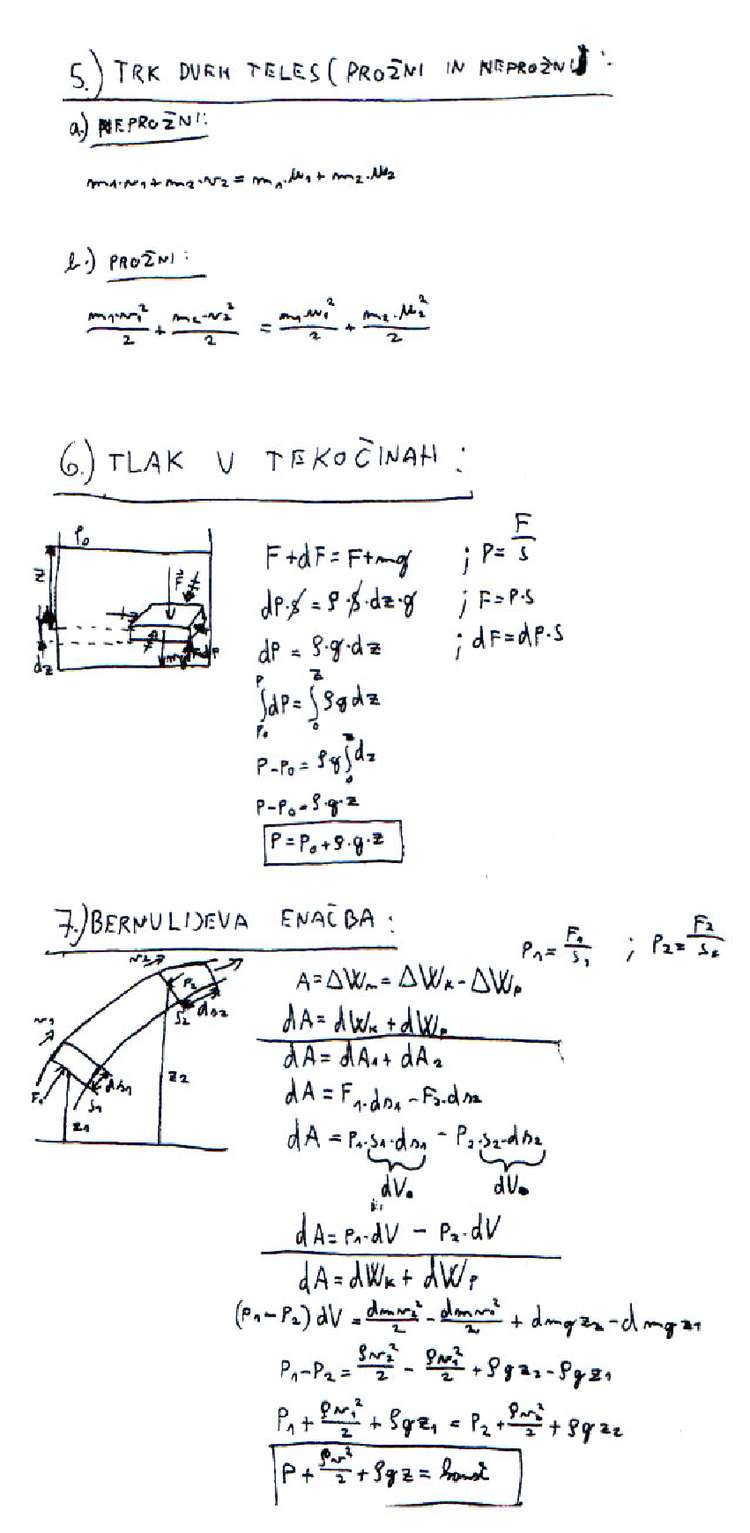 5.) TRK DVEH TELES (PROŽNI IN NEPROŽNI):
a.) NEPROŽNI:
m₁·v₁ + m₂·v₂ = m₁·u₁ + m₂·u₂
b.) PROŽNI:
m₁·v₁²/2 + m₂·v₂²/2 = m₁·u₁²/2 + m₂·u₂²/2
6.) TLAK V TEKOČINAH:
P₀
z
dz
F + dF = F + mg ; P = F/S
dP·S = ρ·S·dz·g ; F = P·S
dP = ρ·g·dz ; dF = dP·S
∫_{P₀}^{P} dP = ∫_{0}^{z} ρg dz
P - P₀ = ρg ∫_{0}^{z} dz
P - P₀ = ρ·g·z
P = P₀ + ρ·g·z
7.) BERNULIJEVA ENAČBA:
P₁ = F₁/S₁ ; P₂ = F₂/S₂
v₂
F₂
S₂
ds₂
v₁
F₁
ds₁
S₁
z₁
z₂
A = ΔWₘ = ΔWₖ - ΔWₚ
dA = dWₖ + dWₚ
dA = dA₁ + dA₂
dA = F₁·ds₁ - F₂·ds₂
dA = P₁·S₁·ds₁ - P₂·S₂·ds₂
dV dV
dA = P₁·dV - P₂·dV
dA = dWₖ + dWₚ
(P₁ - P₂) dV = dmv₂²/2 - dmv₁²/2 + dmgz₂ - dmgz₁
P₁ - P₂ = ρv₂²/2 - ρv₁²/2 + ρgz₂ - ρgz₁
P₁ + ρv₁²/2 + ρgz₁ = P₂ + ρv₂²/2 + ρgz₂
P + ρv²/2 + ρgz = konst